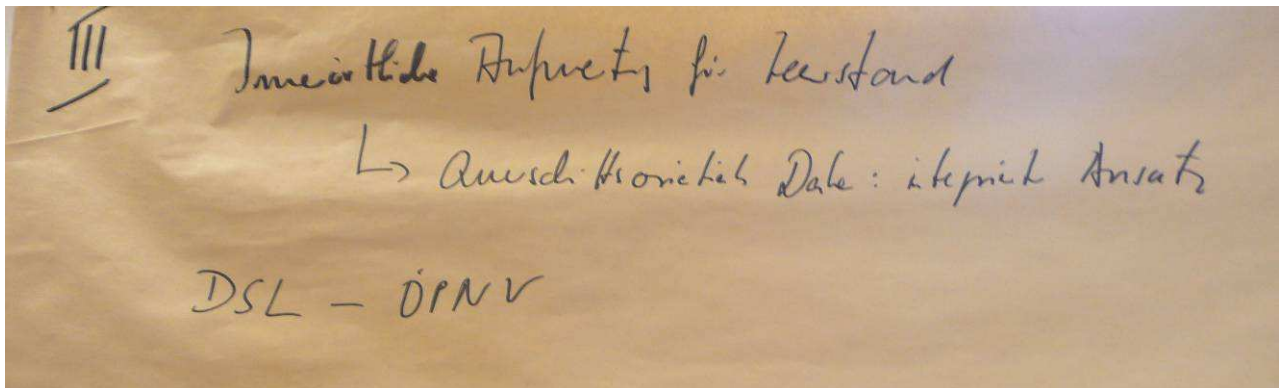 III Innerörtliche Aufwertung für Leerstand
↳ Querschnittsorientierte Daten: integrierter Ansatz
DSL – ÖPNV